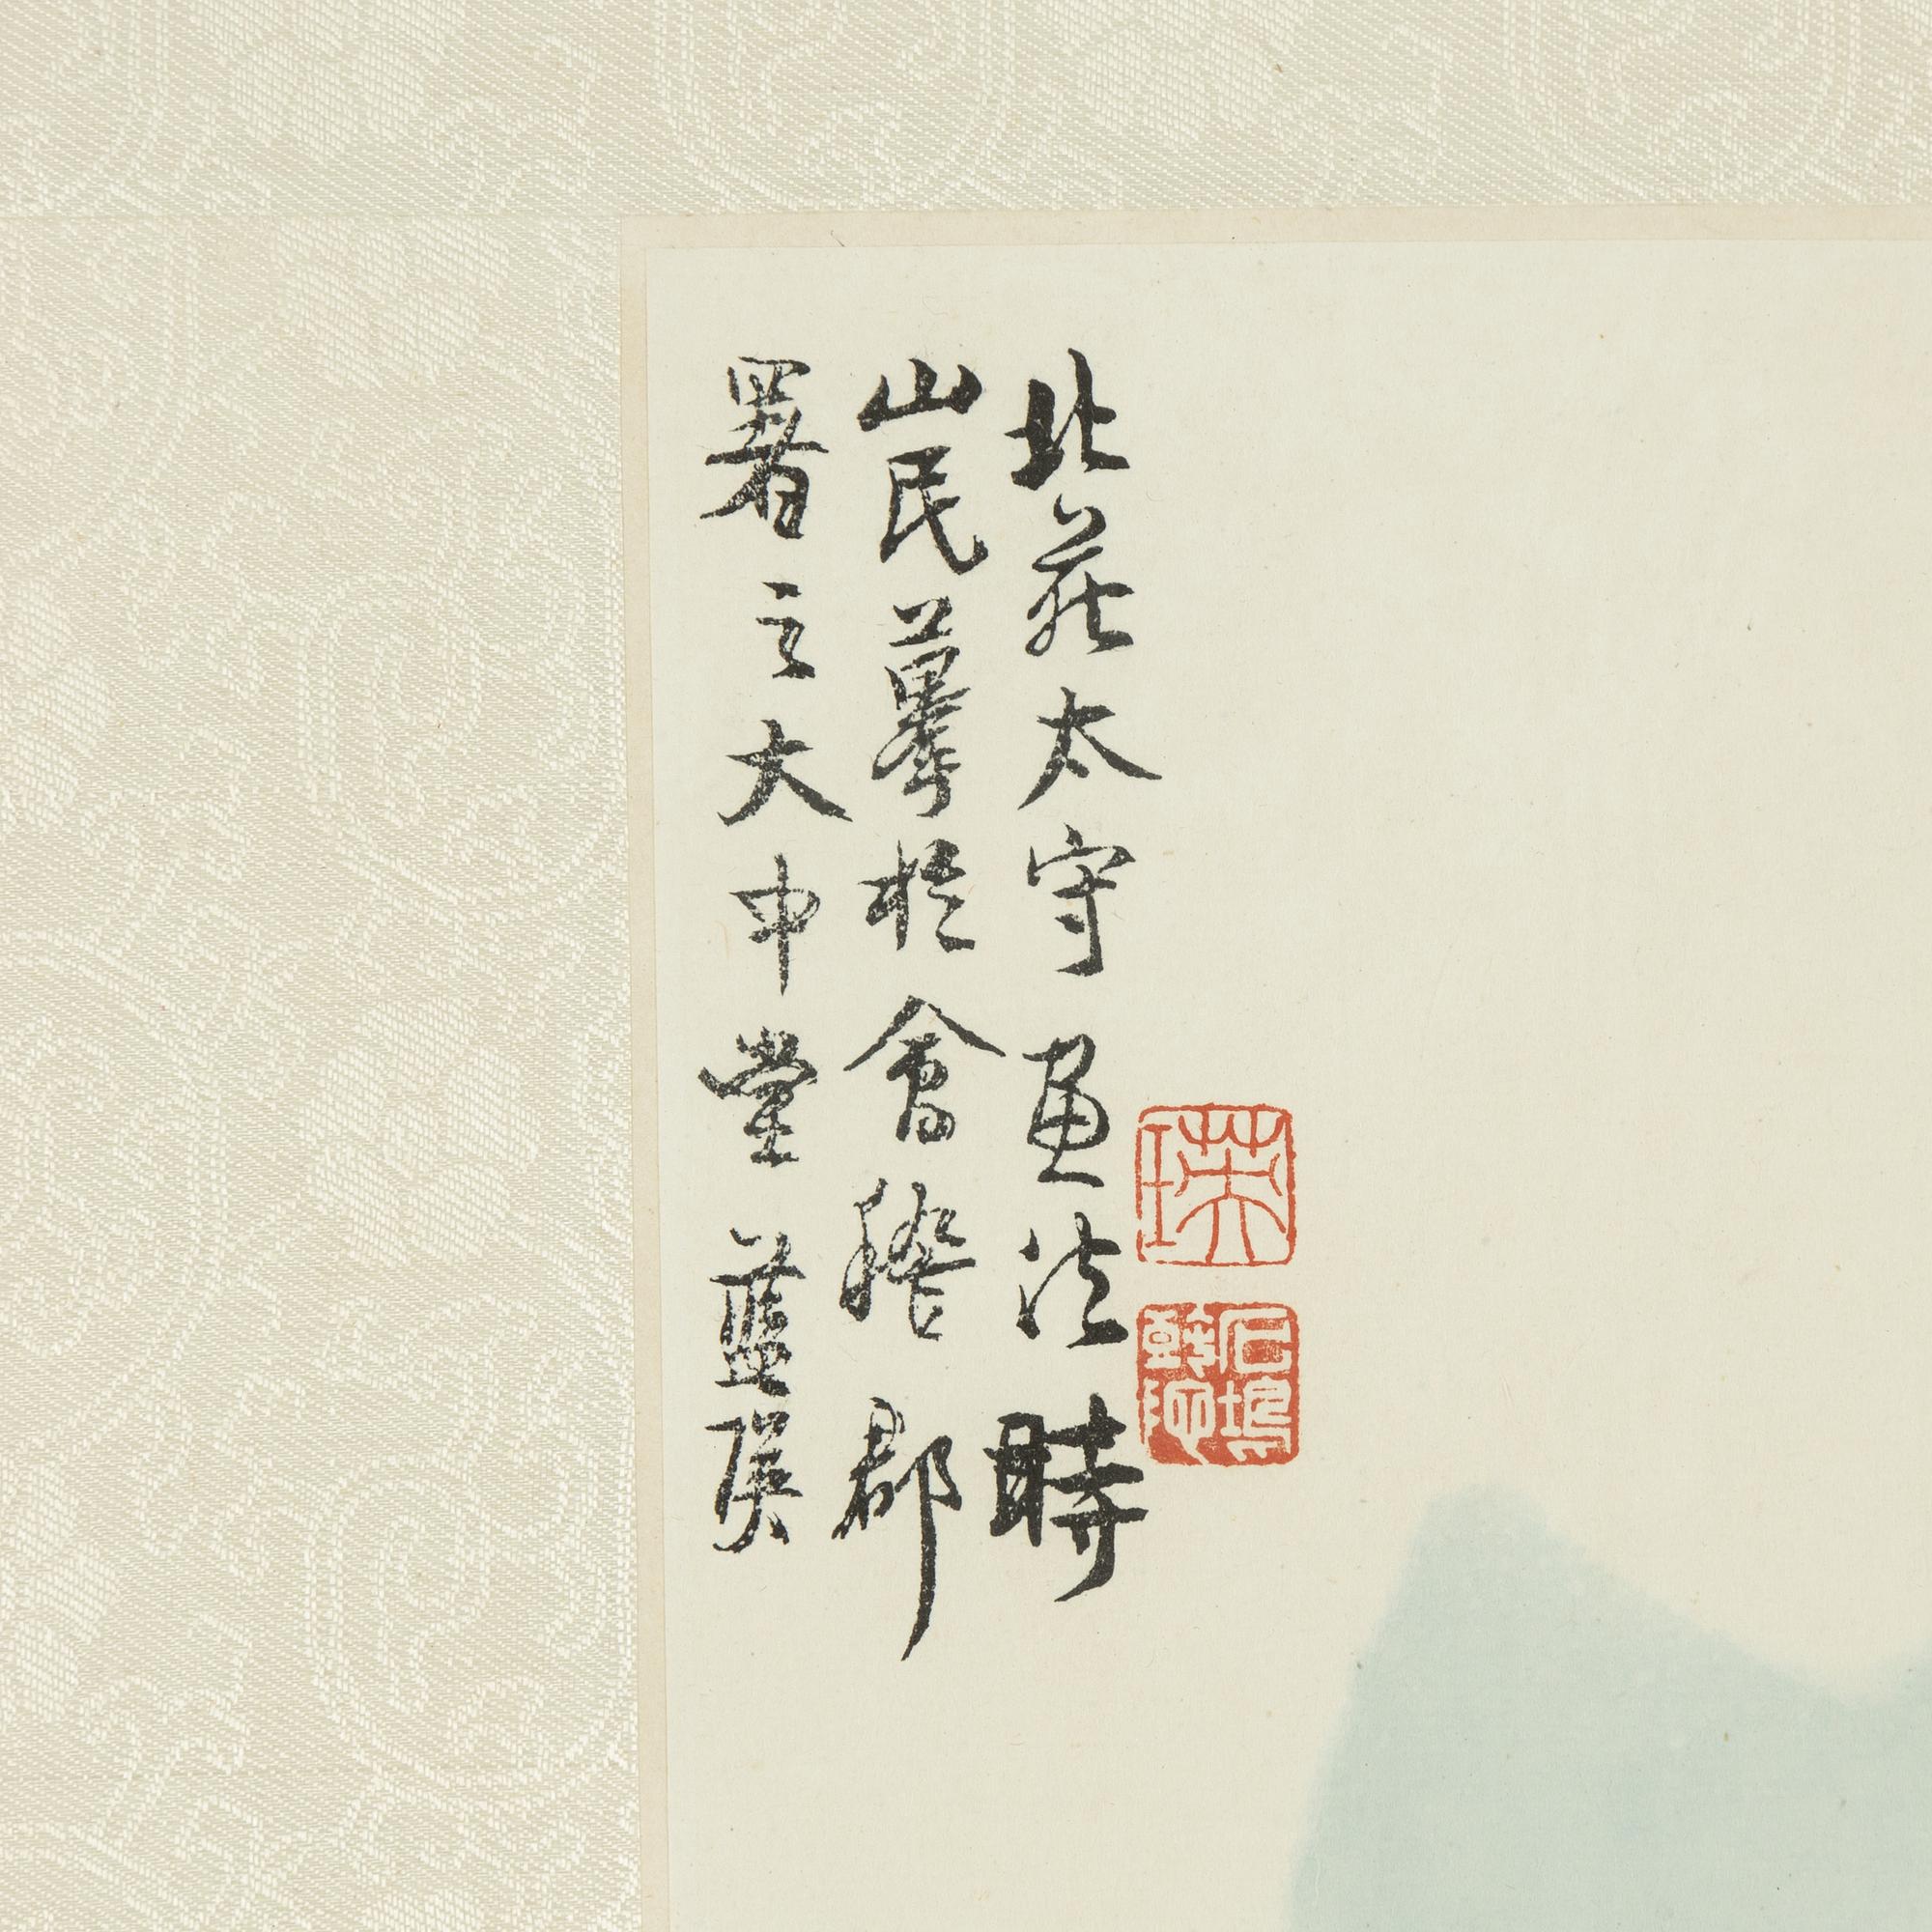 北苑太守画法時
山民摹於會稽郡
署之大申堂藍瑛
瑛
石塢